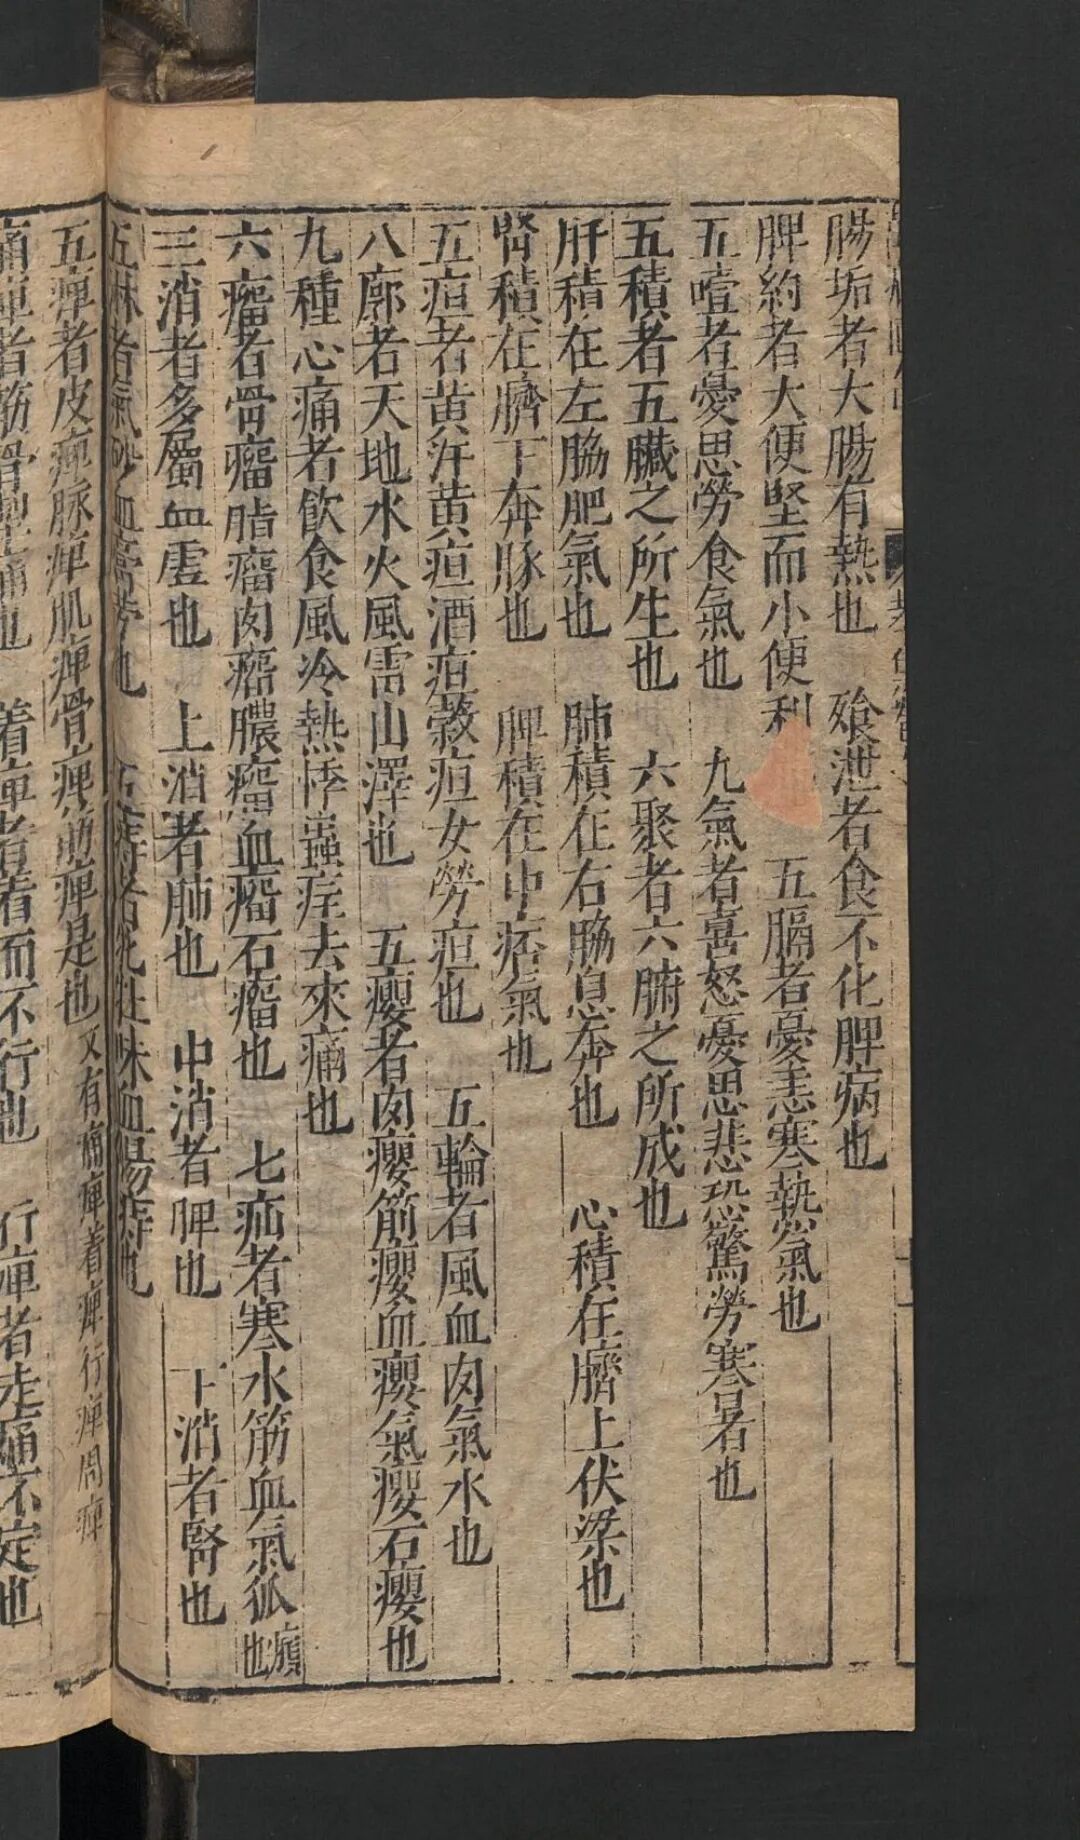 腸垢者大腸有熱也　飱泄者食不化脾病也
脾約者大便堅而小便利　五膈者憂恚寒熱氣也
五噎者憂思勞食氣也　九氣者喜怒憂思悲恐驚勞寒暑也
五積者五臟之所生也　六聚者六腑之所成也
肝積在左脇肥氣也　肺積在右脇息奔也　心積在臍上伏梁也
腎積在臍下奔豚也　脾積在中痞氣也
五疸者黄汗黄疸酒疸穀疸女勞疸也　五輪者風血肉氣水也
八廓者天地水火風雷山澤也　五癭者肉癭筋癭血癭氣癭石癭也
九種心痛者飲食風冷熱悸蟲疰去來痛也
六瘤者骨瘤脂瘤肉瘤膿瘤血瘤石瘤也　七疝者寒水筋血氣狐㿗也
三消者多屬血虚也　上消者肺也　中消者脾也　下消者腎也
五淋者氣砂血膏勞也　五痔者牝牡脉血腸痔也
五痺者皮痺脉痺肌痺骨痺筋痺是也又有痛痺着痺行痺周痺
痛痺者筋骨掣痛也　着痺者着而不行也　行痺者走痛不定也